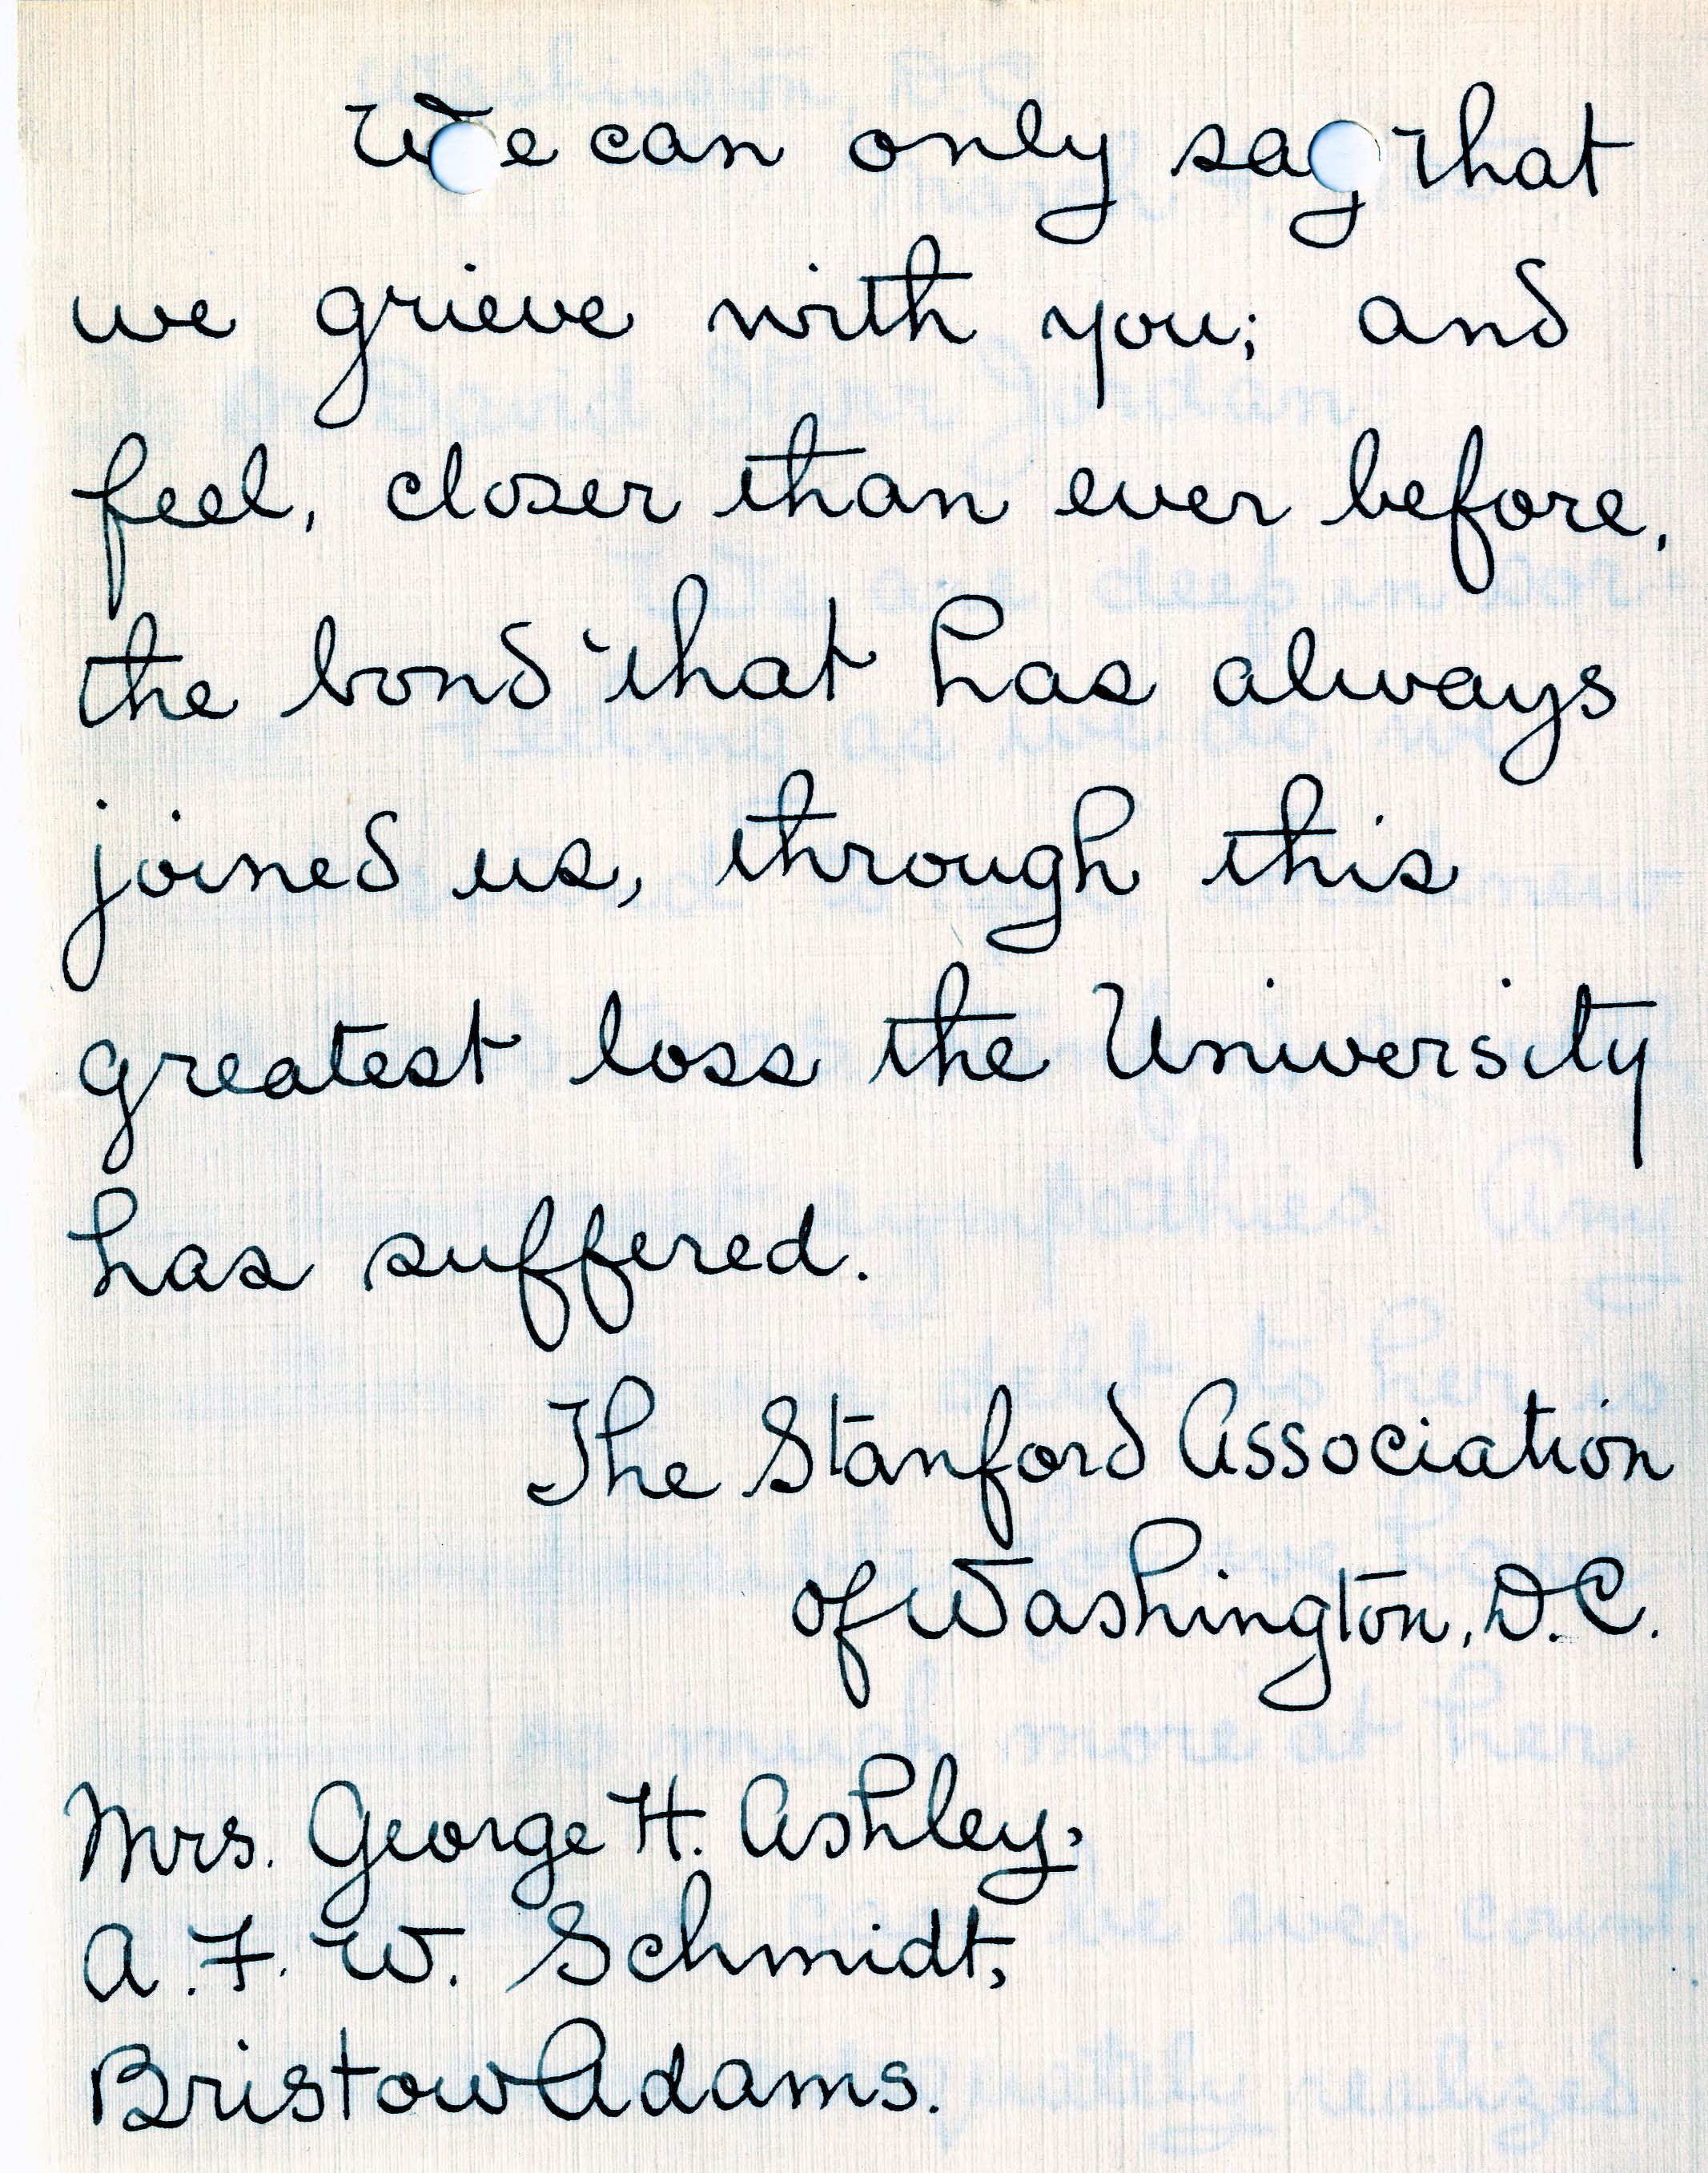 We can only say that
we grieve with you; and
feel, closer than ever before,
the bond that has always
joined us, through this
greatest loss the University
has suffered.
The Stanford Association
of Washington, D.C.
Mrs. George H. Ashley,
A. F. W. Schmidt,
Bristow Adams.